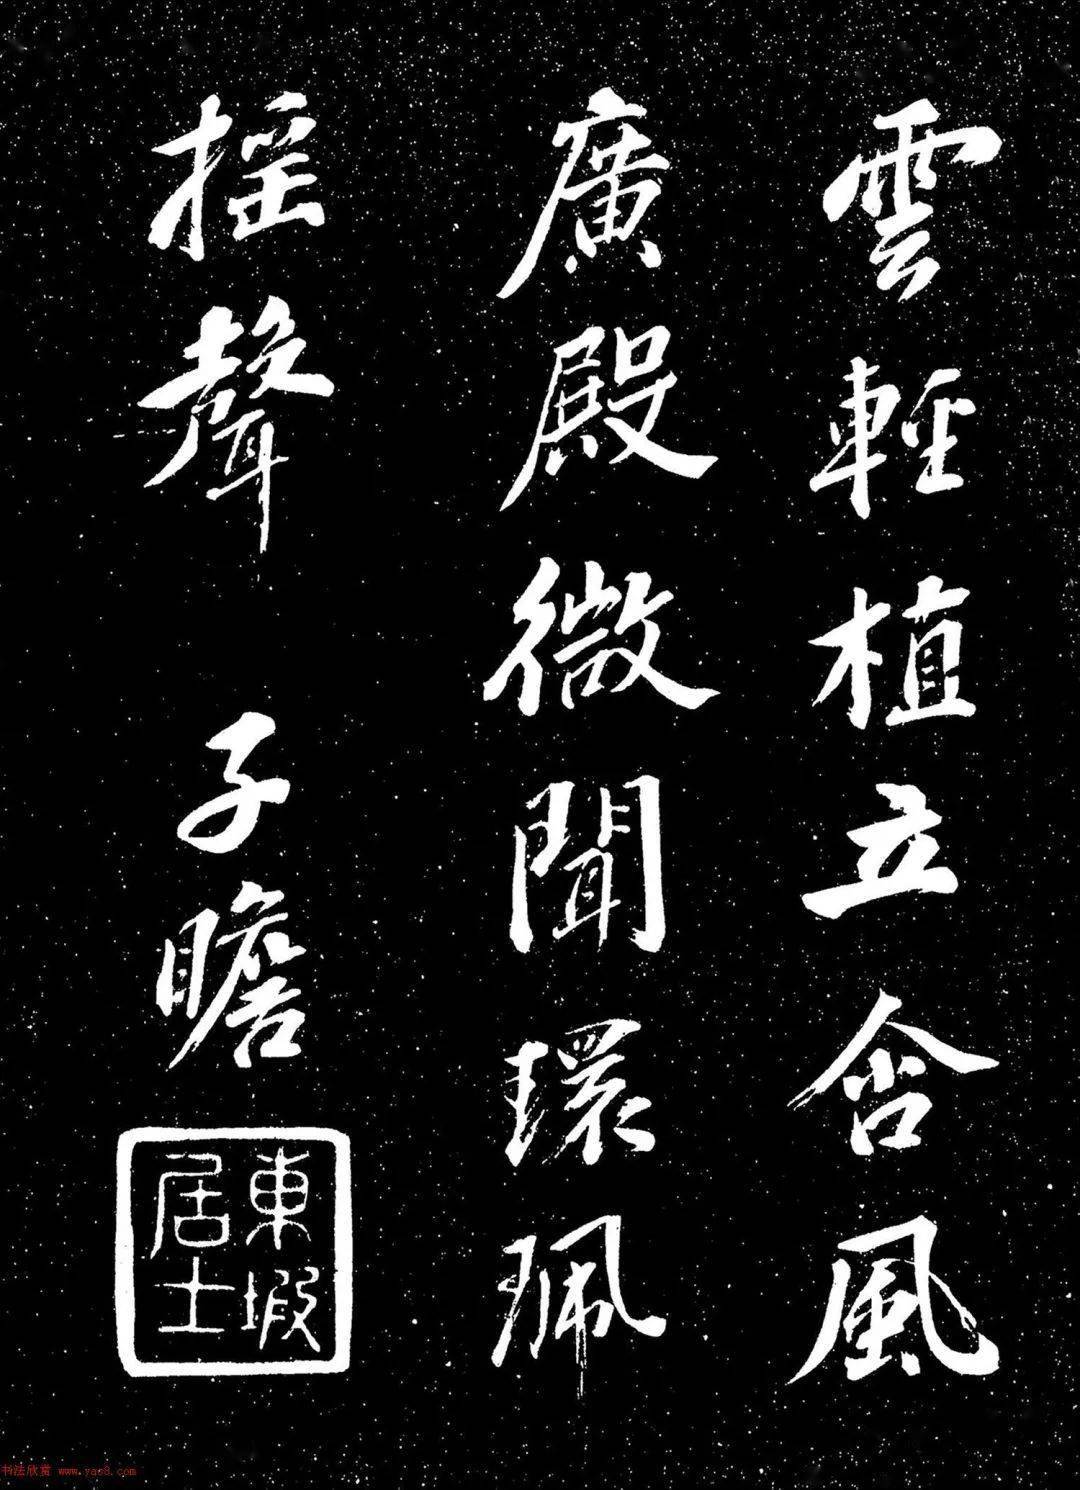 雲輕植立含風
廣殿微聞環珮
搖聲 子瞻
東坡居士
书法欣赏 www.yac8.com